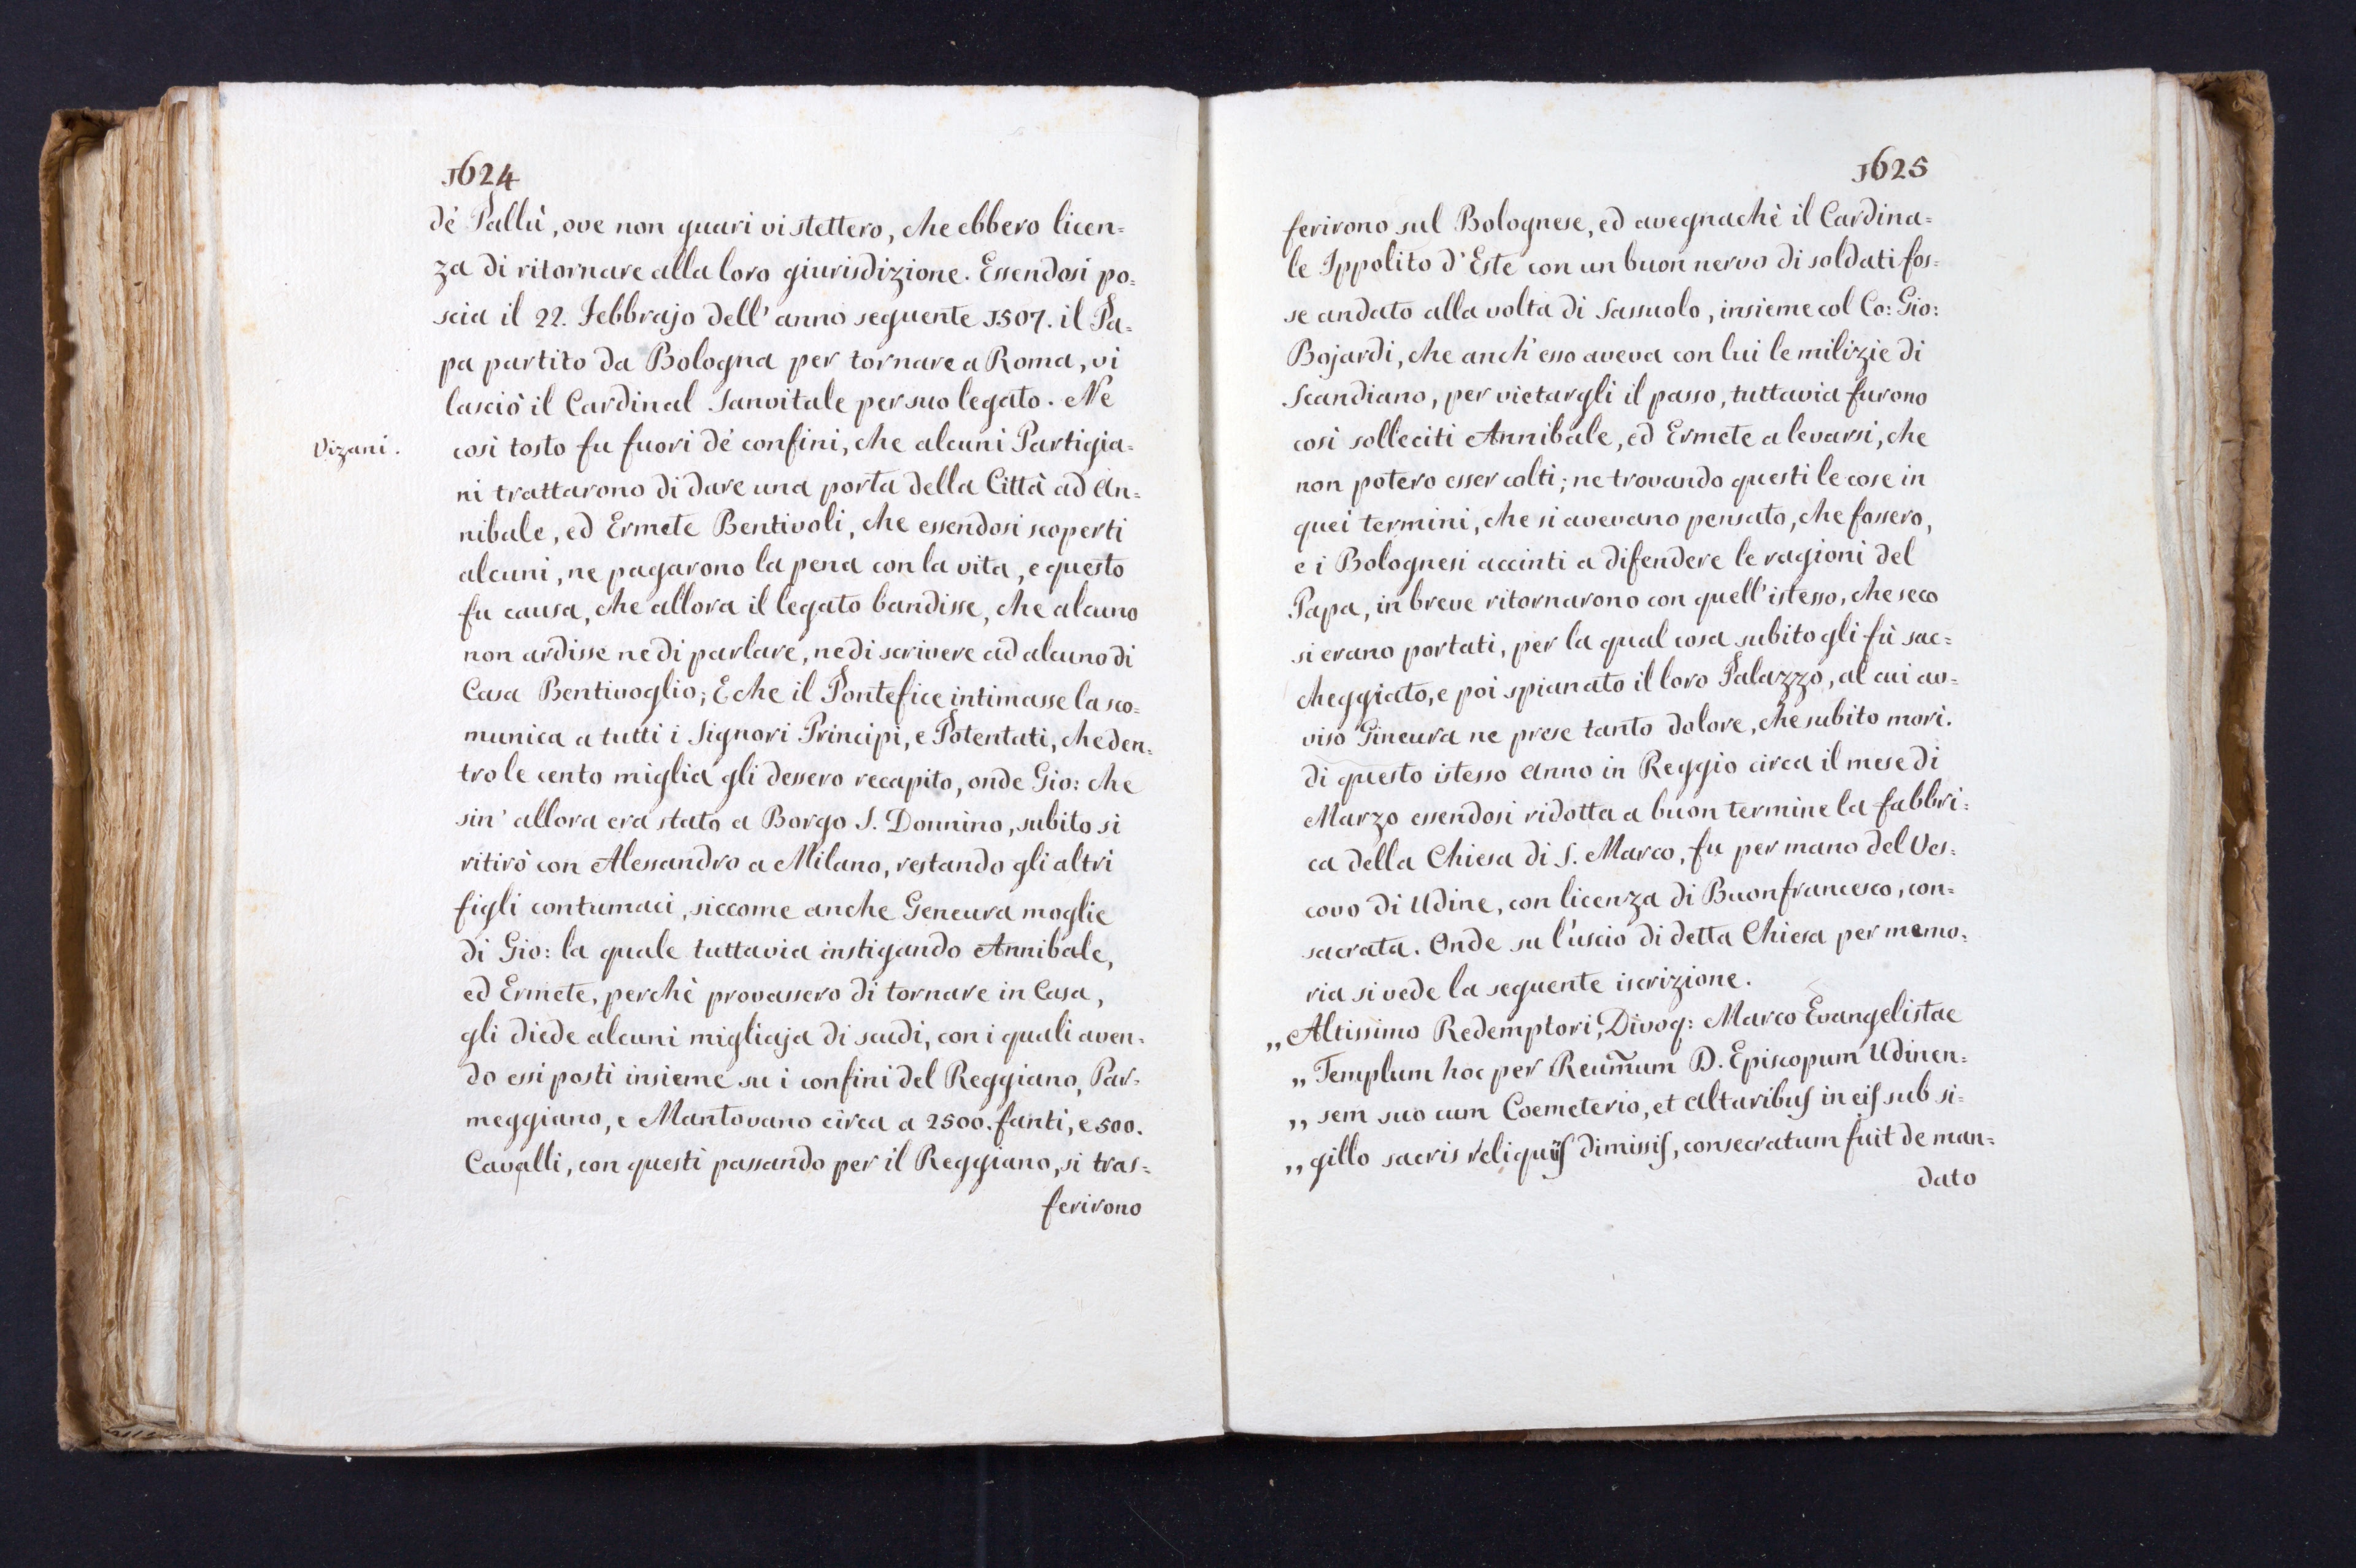 1624
dè Pallù, ove non guari vi stettero, che ebbero licen=
za di ritornare alla loro giurisdizione. Essendosi po=
scia il 22. Febbrajo dell' anno seguente 1507. il Pa=
pa partito da Bologna per tornare a Roma, vi
lasciò il Cardinal Sanvitale per suo legato. Ne
Vizani.
così tosto fu fuori dè confini, che alcuni Partigia=
ni trattarono di dare una porta della Città ad An=
nibale, ed Ermete Bentivoli, che essendosi scoperti
alcuni, ne pagarono la pena con la vita, e questo
fu causa, che allora il legato bandisse, che alcuno
non ardisse ne di parlare, ne di scrivere ad alcuno di
Casa Bentivoglio; E che il Pontefice intimasse la sco=
munica a tutti i Signori Principi, e Potentati, che den=
tro le cento miglia gli dessero recapito, onde Gio: che
sin' allora era stato a Borgo S. Donnino, subito si
ritirò con Alessandro a Milano, restando gli altri
figli contumaci, siccome anche Geneura moglie
di Gio: la quale tuttavia instigando Annibale,
ed Ermete, perchè provassero di tornare in Casa,
gli diede alcuni migliaja di scudi, con i quali aven=
do essi posti insieme su i confini del Reggiano, Par=
meggiano, e Mantovano circa a 2500. fanti, e 500.
Cavalli, con questi passando per il Reggiano, si tras=
ferirono
1625
ferirono sul Bolognese, ed avegnachè il Cardina=
le Ippolito d' Este con un buon nervo di soldati fos=
se andato alla volta di Sassuolo, insieme col Co: Gio:
Bojardi, che anch' esso aveva con lui le milizie di
Scandiano, per vietargli il passo, tuttavia furono
così solleciti Annibale, ed Ermete a levarsi, che
non potero esser colti; ne trovando questi le cose in
quei termini, che si avevano pensato, che fossero,
e i Bolognesi accinti a difendere le ragioni del
Papa, in breve ritornarono con quell' istesso, che seco
si erano portati, per la qual cosa subito gli fù sac=
cheggiato, e poi spianato il loro Palazzo, al cui av=
viso Gineura ne prese tanto dolore, che subito morì.
di questo istesso Anno in Reggio circa il mese di
Marzo essendosi ridotta a buon termine la fabbri=
ca della Chiesa di S. Marco, fu per mano del Ves=
covo di Udine, con licenza di Buonfrancesco, con=
sacrata. Onde su l'uscio di detta Chiesa per memo=
ria si vede la seguente iscrizione.
„ Altissimo Redemptori, Divoq: Marco Evangelistae
„ Templum hoc per Reum̃um D. Episcopum Udinen=
„ sem suo cum Coemeterio, et Altaribus in eis sub si=
„ gillo sacris reliquiis dimissis, consecratum fuit de man=
dato